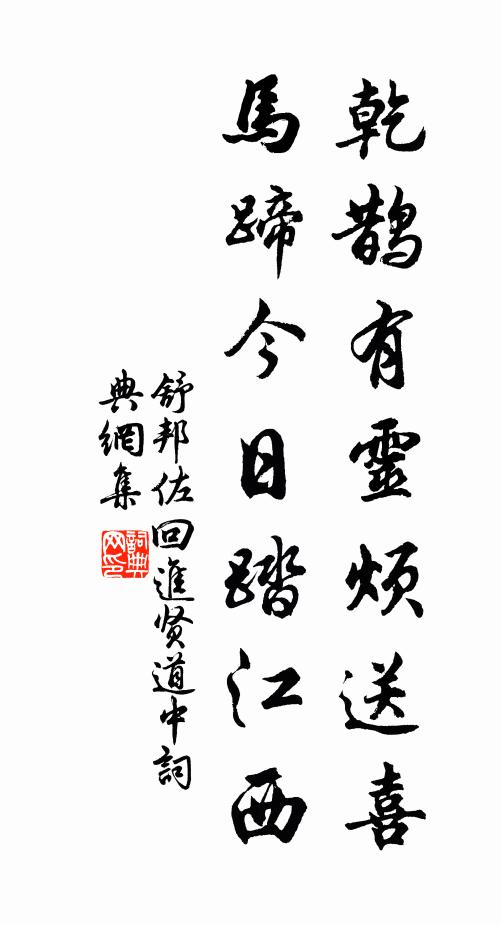 乾鵲有靈煩送喜
馬蹄今日踏江西
舒邦佐回進贤道中詞
典網集
詞典
网印